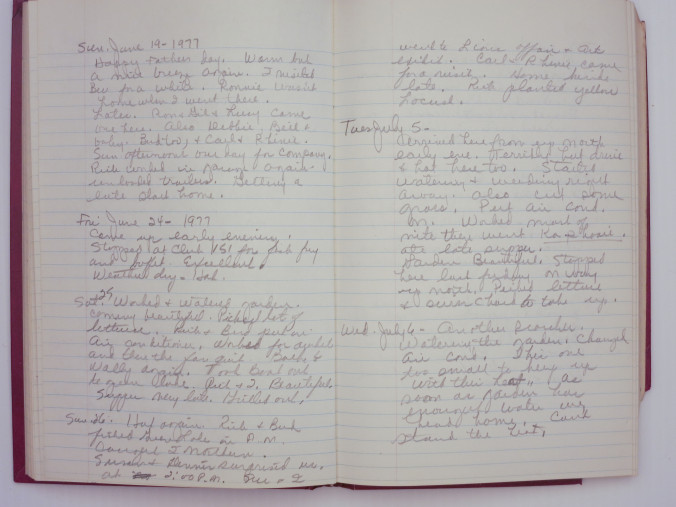 Sun. June 19-1977
Happy Father day. Warm but
a nice breeze again. I visited
Bev for a while. Ronnie Wasn't
home when I went there.
Later. Ron & Gib & came
over here. Also Debbie, Bill &
baby. Bud & Carl & R
Sun afternoon our day for company.
Rich worked in garage again
on trailer. Getting a
late start home.
Fri June 24-1977
Came up early evening.
Stopped at Club V51 for fish fry
and buffet Excellent.
Weather dry - Hot.
Sat. 25 Worked & Watered garden.
coming beautiful. Picked lot of
lettuce. Rich & Bud put in
Air conditioner. Worked for
and then the
Wally again. Took boat out
to again Rich & I. Beautiful.
Supper very late. out.
Sun 26. Hot again. Rich & Bud
fished Lake in P.M.
I
Susan & Dennis surprised us.
at 2:00 P.M. Sue & I
went to Lions affair & Art
exhibit. Carl & R came
for a visit. Home
late. Rich planted yellow
Locust.
Tues July 5 -
Arrived here from up north
early eve. Terrible hot drive
& hot here too. Started
Watering & weeding right
away. also cut some
grass. Put air cond.
on. Worked most of
nite then went
ate late supper.
Garden Beautiful. Stopped
here last friday on way
up north. Picked lettuce
& swiss chard to take up.
Wed. July 6 - Another scorcher.
Watering the garden. Changed
Air Cond. This one
too small to keep up
with this heat. As
soon as garden has
enough water we
head home. Can't
stand the heat.